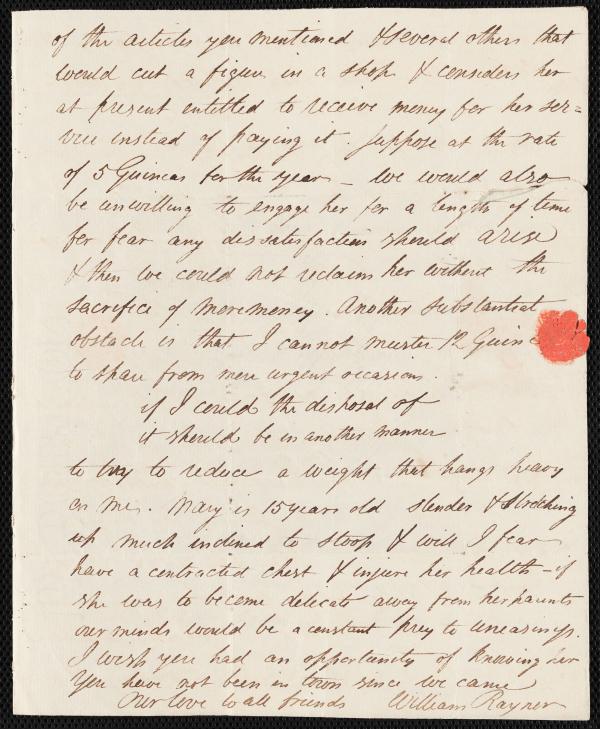 of the articles you mentioned & several others that
would cut a figure in a shop & considers her
at present entitled to receive money for her ser=
vice instead of paying it. Suppose at the rate
of 5 Guineas for the year – We would also
be unwilling to engage her for a length of time
for fear any dissatisfaction should arise
& then we could not reclaim her without the
sacrifice of more money. Another substantial
obstacle is that I cannot muster 12 Guin
to spare from more urgent occasions.
if I could the disposal of
it should be in another manner
to try to reduce a weight that hangs heavy
on me. Mary is 15 years old slender & stretching
up much inclined to stoop & will I fear
have a contracted chest & injure her health – if
she was to become delicate away from her parents
our minds would be a constant prey to uneasiness.
I wish you had an opportunity of knowing her
You have not been in town since we came
Our love to all friends William Rayner